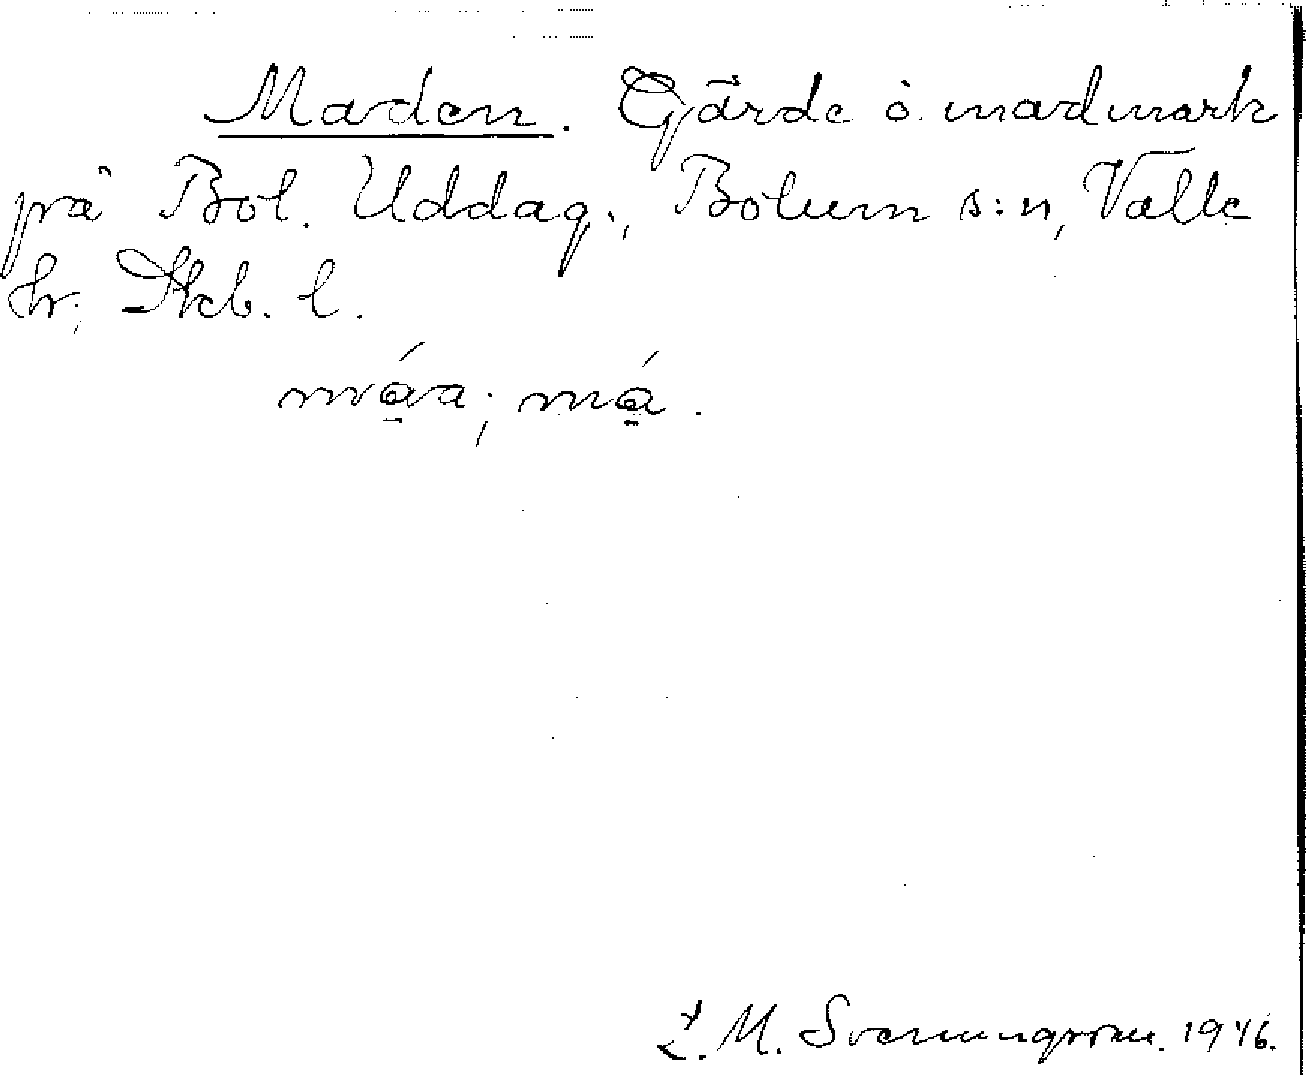 Maden. Gärde o. madmark
på Bol. Uddag., Bolum s:n, Valle
hr; Skb. l.
máa; má.
L. M. Svenungsson. 1946.